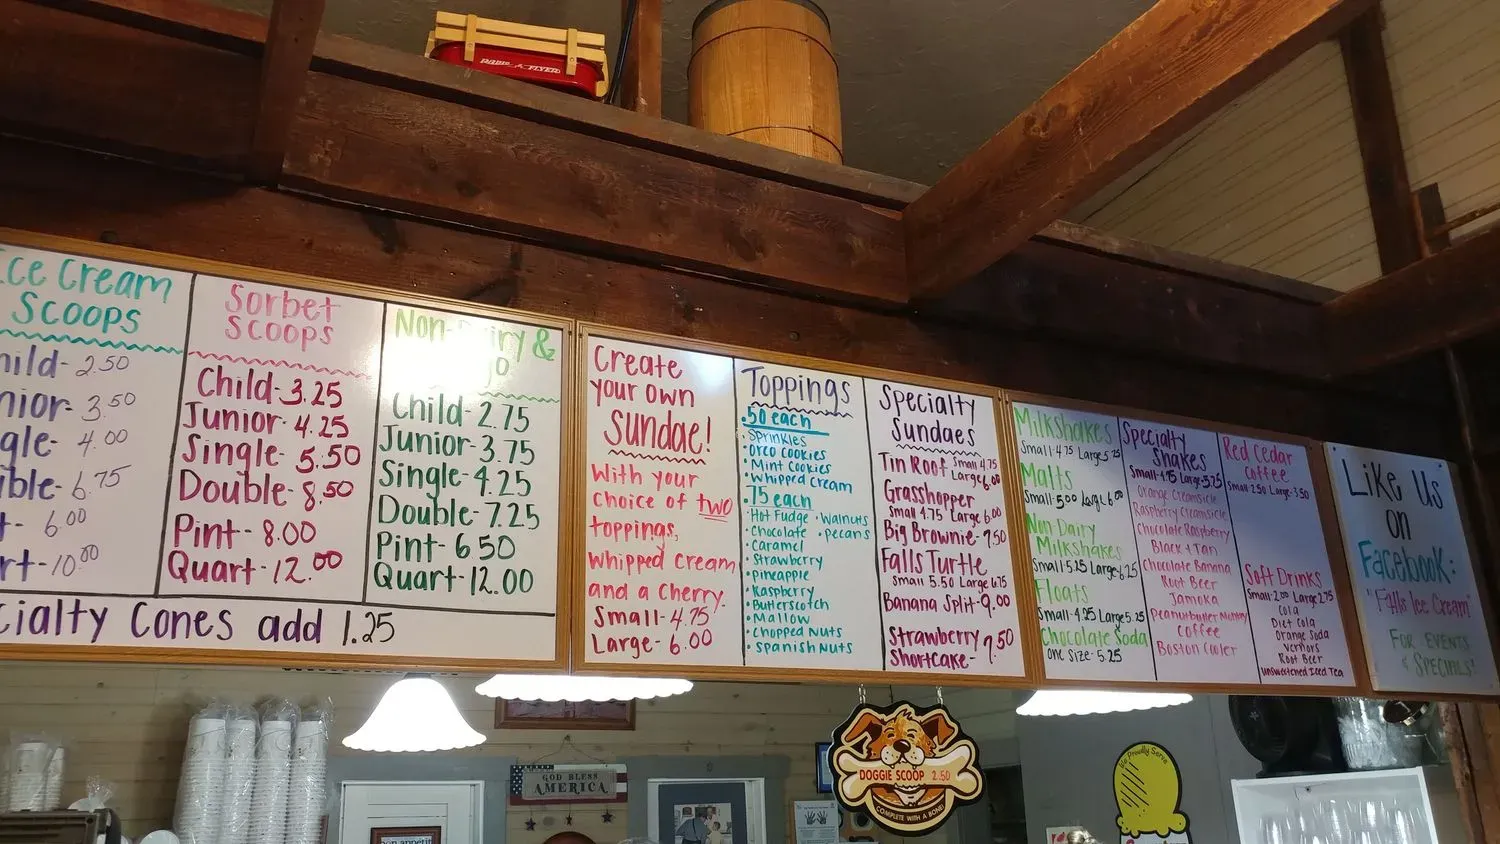 RADIO FLYER
Ice Cream
Scoops
hild- 2.50
nior- 3.50
gle- 4.00
ible- 6.75
t- 6.00
rt- 10.00
Sorbet
Scoops
Child- 3.25
Junior- 4.25
Single- 5.50
Double- 8.50
Pint- 8.00
Quart- 12.00
Non-Dairy &
Child- 2.75
Junior- 3.75
Single- 4.25
Double- 7.25
Pint- 6.50
Quart- 12.00
cialty Cones add 1.25
Create
your own
Sundae!
With your
choice of two
toppings,
whipped cream
and a cherry.
Small- 4.75
Large- 6.00
Toppings
.50 each
• Sprinkles
• Oreo Cookies
• Mint Cookies
• Whipped Cream
.75 each
• Hot Fudge • Walnuts
• Chocolate • pecans
• Caramel
• Strawberry
• pineapple
• Raspberry
• Butterscotch
• Mallow
• Chopped Nuts
• Spanish Nuts
Specialty
Sundaes
Tin Roof Small 4.75
Large 6.00
Grasshopper
Small 4.75 Large 6.00
Big Brownie- 7.50
Falls Turtle
Small 5.50 Large 6.75
Banana Split- 9.00
Strawberry
Shortcake- 7.50
Milkshakes
Small-4.75 Large 5.25
Malts
Small-5.00 Large 6.00
Non-Dairy
Milkshakes
Small-5.25 Large-6.25
Floats
Small-4.25 Large 5.25
Chocolate Soda
One Size- 5.25
Specialty
Shakes
Small-4.75 Large 5.25
Orange Creamsicle
Raspberry Creamsicle
Chocolate Raspberry
Black + Tan
Chocolate Banana
Root Beer
Jamoka
Peanutbutter
Coffee
Boston Cooler
Red Cedar
Coffee
Small 2.50 Large-3.50
Soft Drinks
Small-2.00 Large 2.75
Cola
Diet Cola
Orange Soda
Vernors
Root Beer
Unsweetened Iced Tea
Like Us
on
Facebook:
"Falls Ice Cream"
For Events
& Specials!
GOD BLESS
AMERICA
DOGGIE SCOOP 2.50
COMPLETE WITH A BONE!
We Proudly Serve
bon appétit